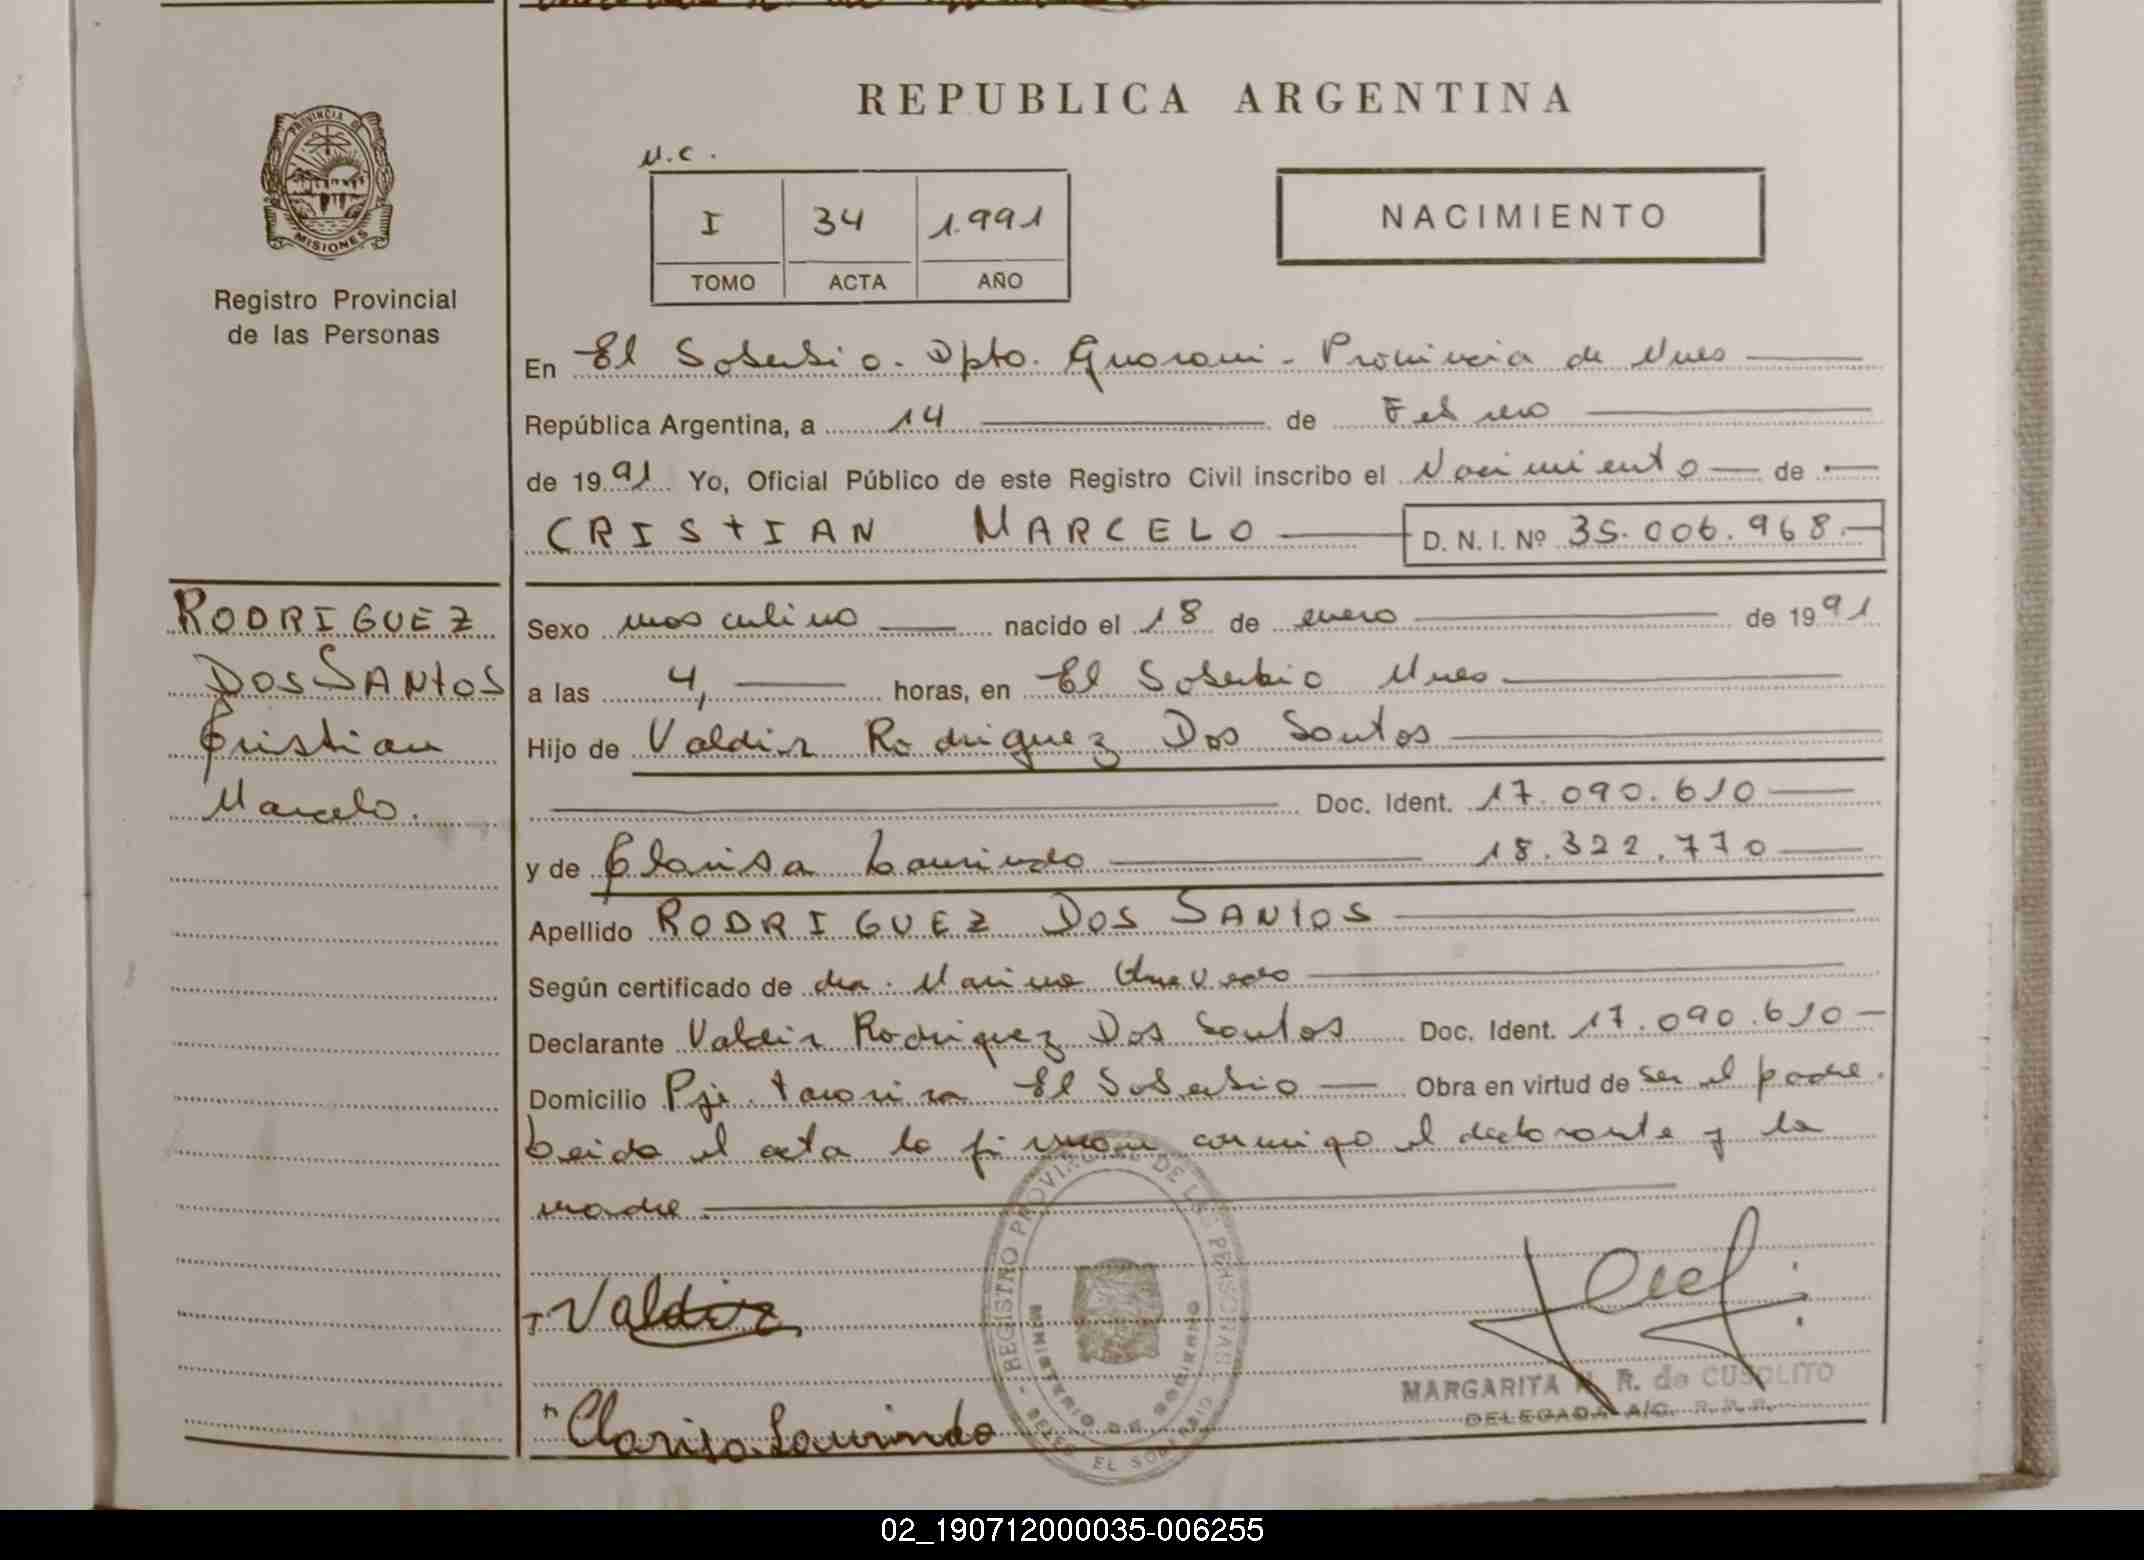 REPUBLICA ARGENTINA
PROVINCIA DE
MISIONES
Registro Provincial
de las Personas
N.C.
I 34 1.991
TOMO ACTA AÑO
NACIMIENTO
En El Soberbio. Dpto. Guarani - Provincia de Mnes
República Argentina, a 14 de Febrero
de 1991 Yo, Oficial Público de este Registro Civil inscribo el Nacimiento de
CRISTIAN MARCELO D. N. I. Nº 35.006.968.
RODRIGUEZ
DOS SANTOS
Cristian
Marcelo.
Sexo masculino nacido el 18 de enero de 1991
a las 4, horas, en El Soberbio Mnes
Hijo de Valdir Rodriguez Dos Santos
Doc. Ident. 17.090.610
y de Clarisa Laurindo 18.322.770
Apellido RODRIGUEZ DOS SANTOS
Según certificado de dra. Marina
Declarante Valdir Rodriguez Dos Santos Doc. Ident. 17.090.610
Domicilio Pje. El Soberbio Obra en virtud de ser el padre.
Leida el acta la firman conmigo el declarante y la
madre
Valdir
Clarisa Laurindo
REGISTRO PROVINCIAL DE LAS PERSONAS
MINISTERIO DE GOBIERNO
EL SOBERBIO
MARGARITA R. de CUSOLITO
DELEGADA A/C. R.P.P.
02_190712000035-006255